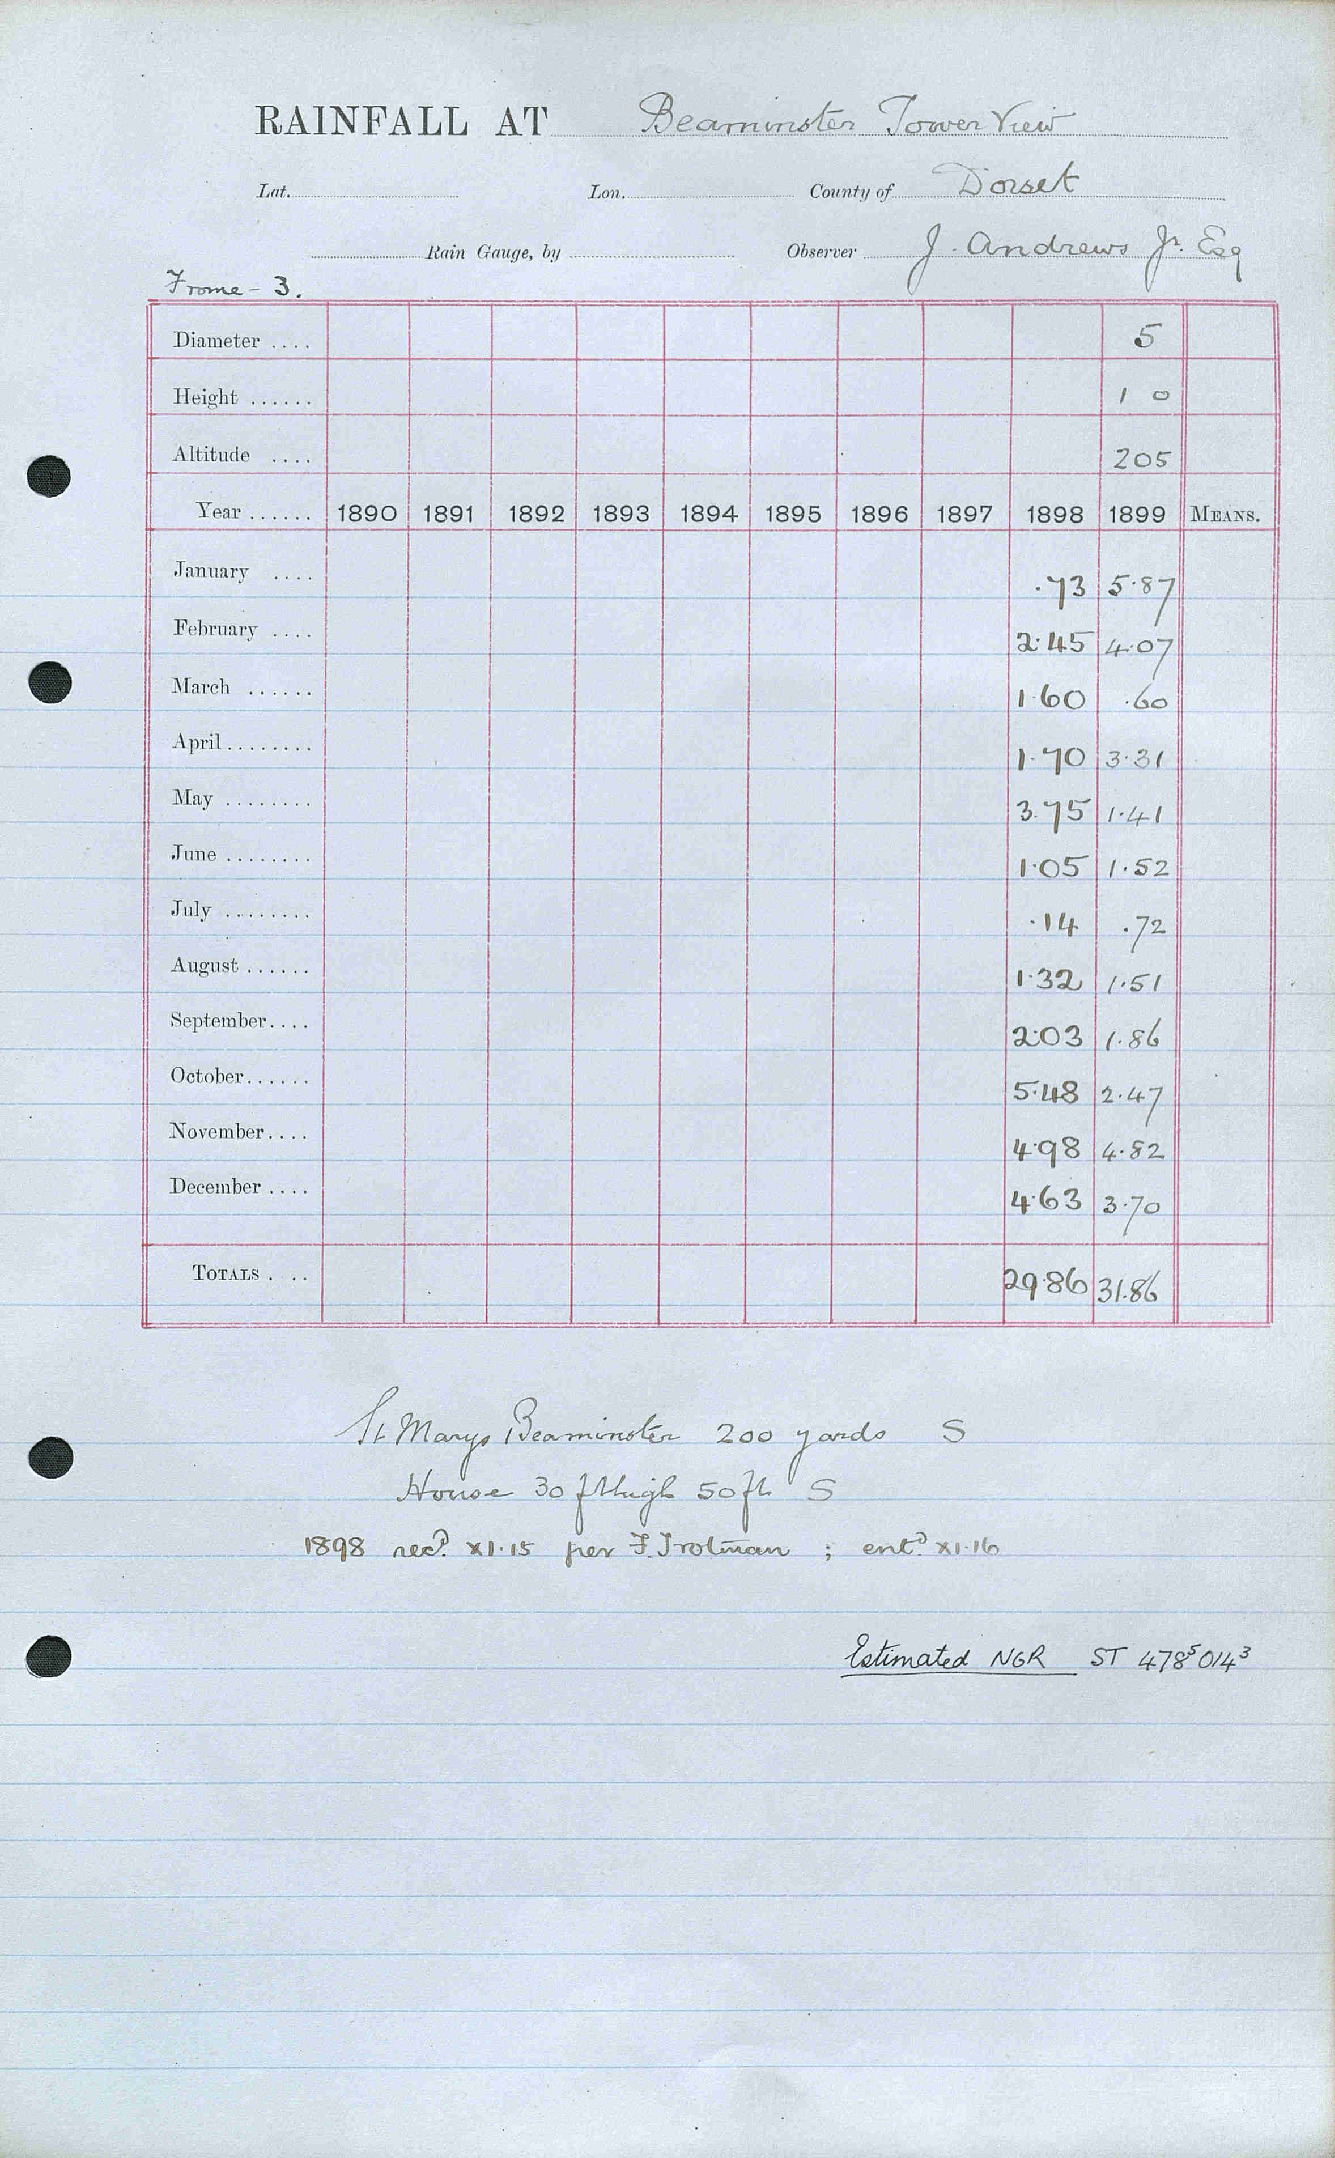 RAINFALL AT Beaminster Tower View
Lat. Lon. County of Dorset
Rain Gauge, by Observer J. Andrews Jr. Esq
Frome - 3.
Diameter .... 5
Height ...... 1 0
Altitude .... 205
Year ...... 1890 1891 1892 1893 1894 1895 1896 1897 1898 1899 MEANS.
January .... .73 5.87
February .... 2.45 4.07
March ...... 1.60 .60
April ........ 1.70 3.31
May ........ 3.75 1.41
June ........ 1.05 1.52
July ........ .14 .72
August ...... 1.32 1.51
September.... 2.03 1.86
October...... 5.48 2.47
November.... 4.98 4.82
December .... 4.63 3.70
TOTALS . .. 29.86 31.86
St Marys Beaminster 200 yards S
House 30 ft high 50 ft S
1898 recd. X1.15 per F. Trotman ; entd. X1.16
Estimated NGR ST 478⁵ 014³